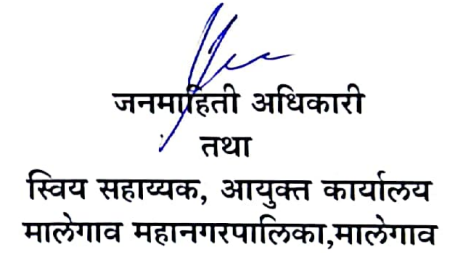 जनमाहिती अधिकारी
तथा
स्विय सहाय्यक, आयुक्त कार्यालय
मालेगाव महानगरपालिका,मालेगाव